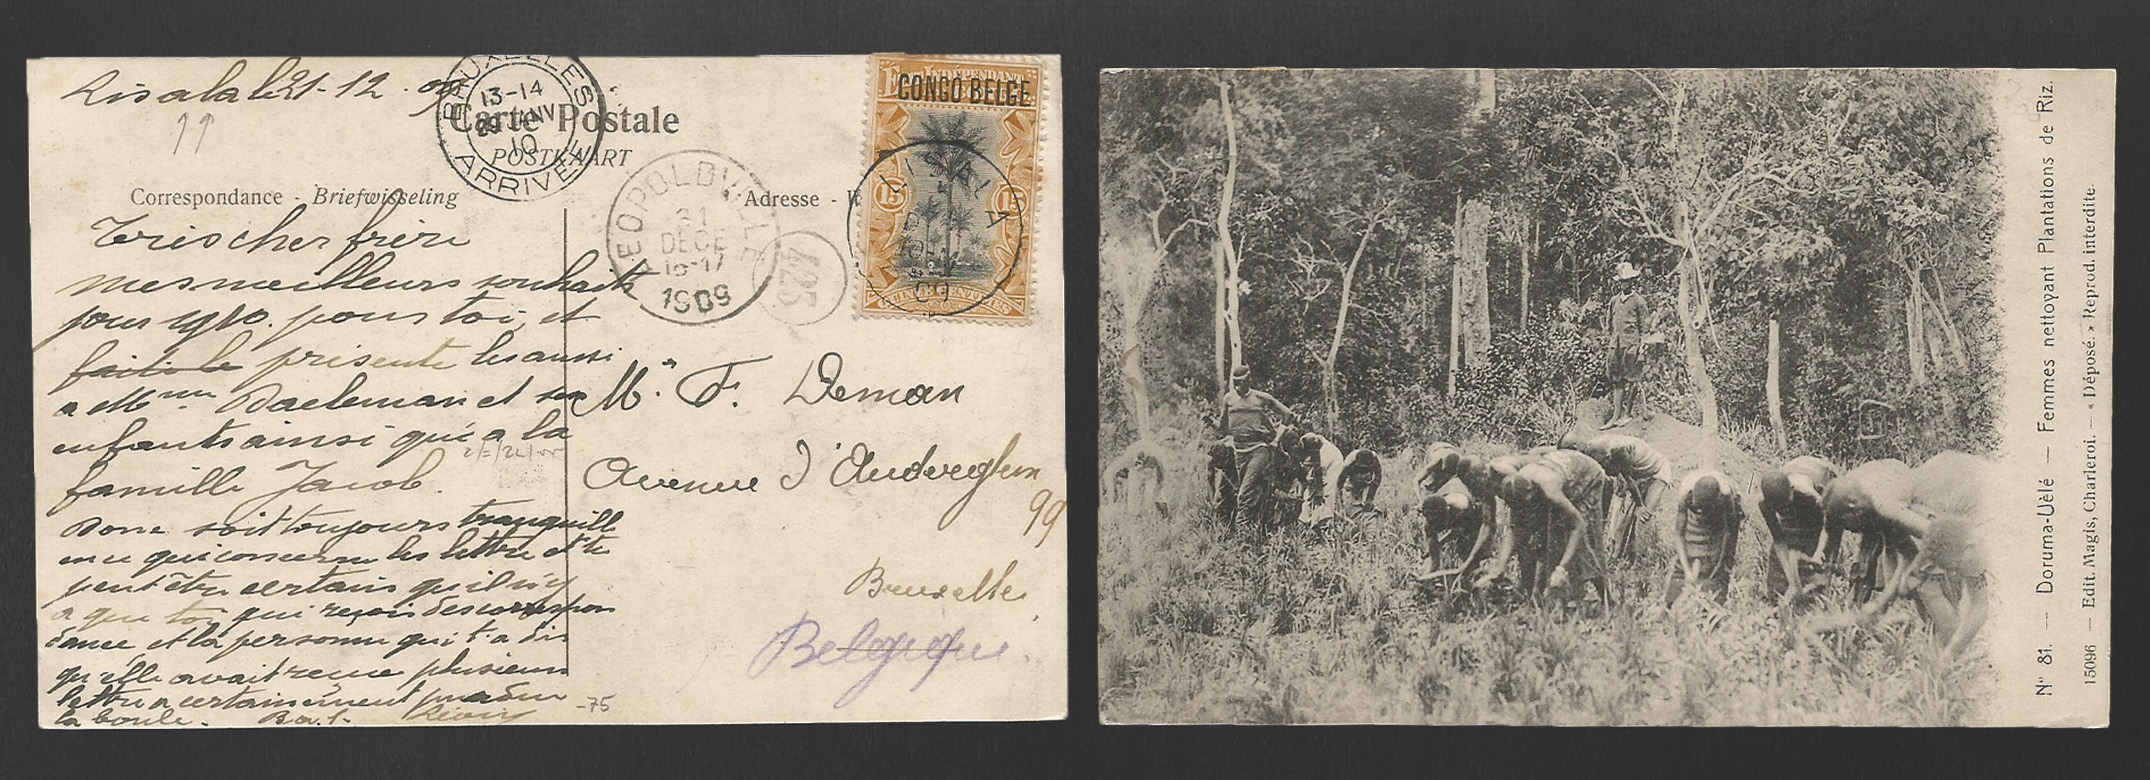 Lisala le 21-12-09
BRUXELLES
13-14
29 JANV
10
ARRIVEE
Carte Postale
POSTKAART
Correspondance - Briefwisseling
Adresse - W
CONGO BELGE
INDÉPENDANT
15 15
LISALA
09
LEOPOLDVILLE
31
DECE
16-17
1909
425
Tres cher frère
mes meilleurs souhaits
pour 1910. pour toi, et
présente les aussi
a Mme Daeleman et ses
enfants ainsi qu'a la
famille Jacob.
Donc soit toujours tranquille
en ce qui concerne les lettre et tu
peut être certains qu'il n'y
a que toi qui reçois des correspon
dance et la personne qui t'a dis
qu'elle avait reçue plusieurs
lettre a certainement perdue
la boule.
Mr F. Deman
Avenue d'Auderghem
99
Bruxelles
Belgique.
-75
No 81. — Doruma-Uèlé — Femmes nettoyant Plantations de Riz.
15096 — Edit. Magis, Charleroi. — « Déposé. » Reprod. interdite.